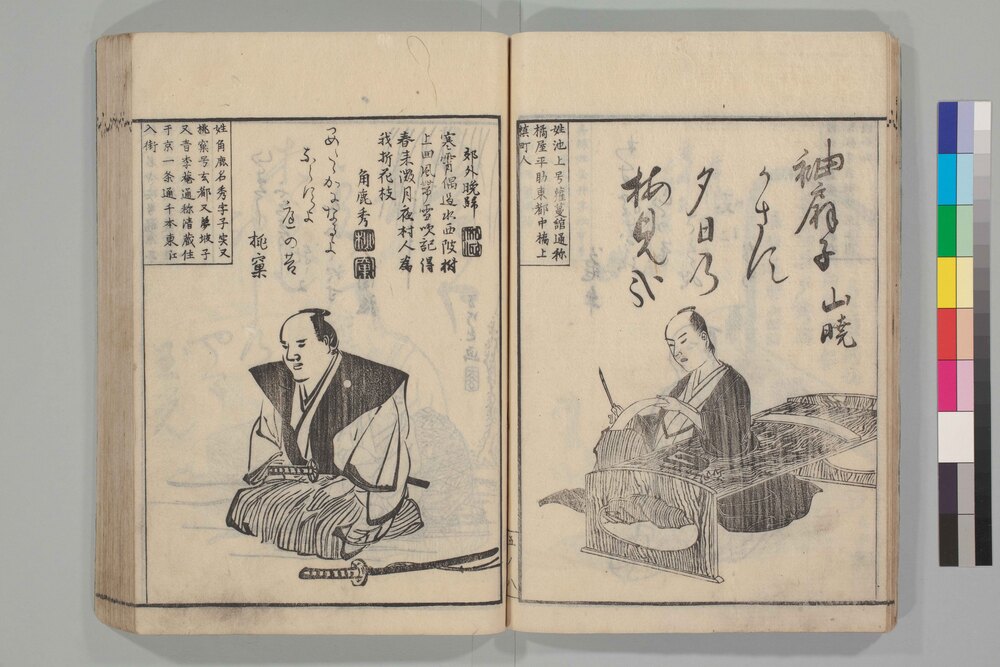 姓池上号薩曼館通称
橘屋平助東都中橋上
槙町人
袖扇子 山暁
かさす
夕日乃
梅見哉
姓角鹿名秀字子実又
桃窠号玄都又夢坡子
又香李菴通称清蔵住
于京一条通千本東江
入街
郊外晩歸
寒霄偶過水西陂樹
上回風帶雪吹記得
春来澂月夜村人為
我折花枝
角鹿秀
庭の苔
桃窠